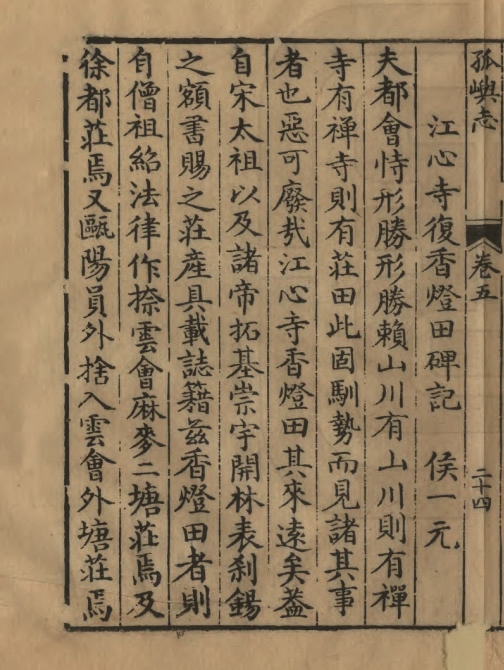 孤嶼志 卷五 二十四
江心寺復香燈田碑記 侯一元
夫都會恃形勝形勝賴山川有山川則有禪
寺有禪寺則有莊田此固馴勢而見諸其事
者也惡可廢哉江心寺香燈田其來遠矣蓋
自宋太祖以及諸帝拓基崇宇開林表剎錫
之額書賜之莊產具載誌籍茲香燈田者則
自僧祖紹法律作捺雲會麻麥二塘莊焉及
徐都莊焉又甌陽員外捨入雲會外塘莊焉